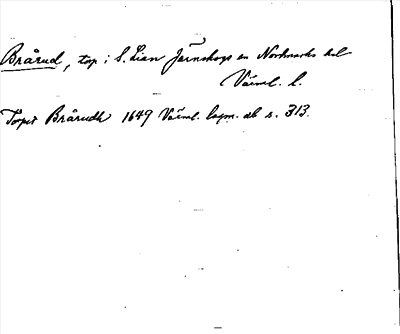 Brårud, top i S. Lian Järnskogs sn Nordmarks hd
Värml. l.
Torpet Brårudh 1649 Värml. lagm. db s. 313.